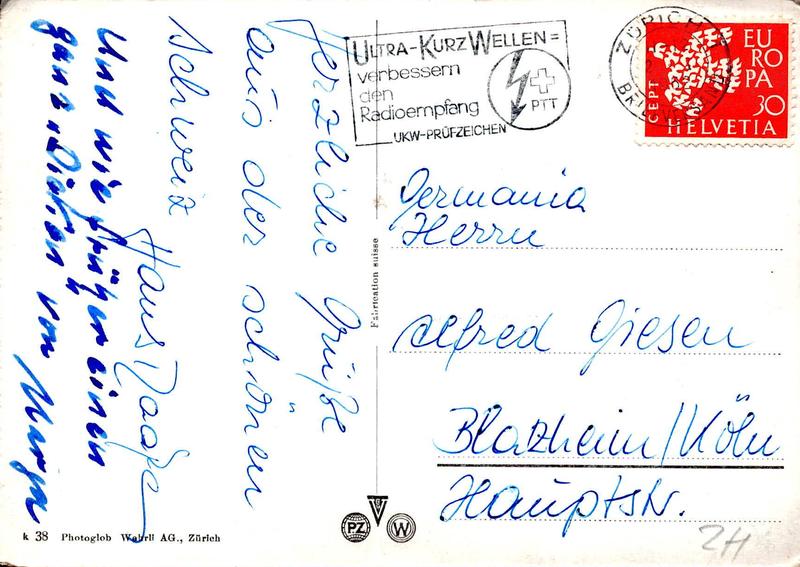 Herzliche Grüße
aus der schönen
Schweiz
Hans
Und wie früher einen
ganz von Marga
ULTRA-KURZWELLEN=
verbessern
den
Radioempfang
UKW-PRÜFZEICHEN
PTT
ZÜRICH
CEPT
EUROPA
30
HELVETIA
Germania
Herrn
Alfred Giesen
Blatzheim/Köln
Hauptstr.
Fabrication suisse
PZ
W
k 38 Photoglob Wehrli AG., Zürich
ZH